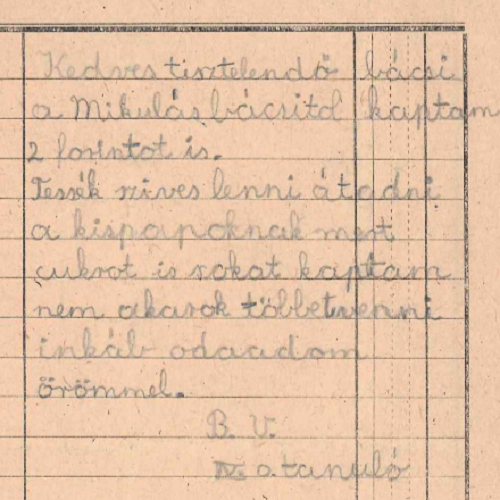 Kedves tisztelendő bácsi
a Mikulásbácsitol kaptam
2 forintot is.
Tessék szives lenni átadni
a kispapoknak mert
cukrot is sokat kaptam
nem akarok többetvenni
inkáb odaadom
örömmel.
B. V.
IV. o. tanuló